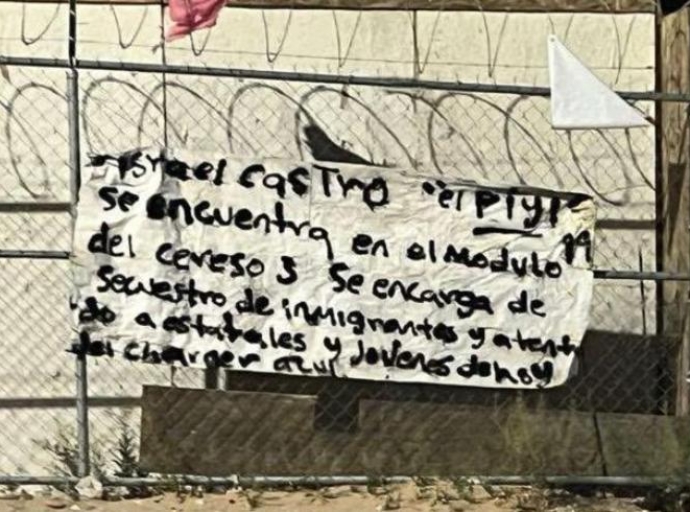 Israel Castro "el Piyi"
se encuentra en el Modulo 19
del cereso 3 Se encarga de
Secuestro de inmigrantes y atenta
do a estatales y Jovenes de hoy
del charger azul